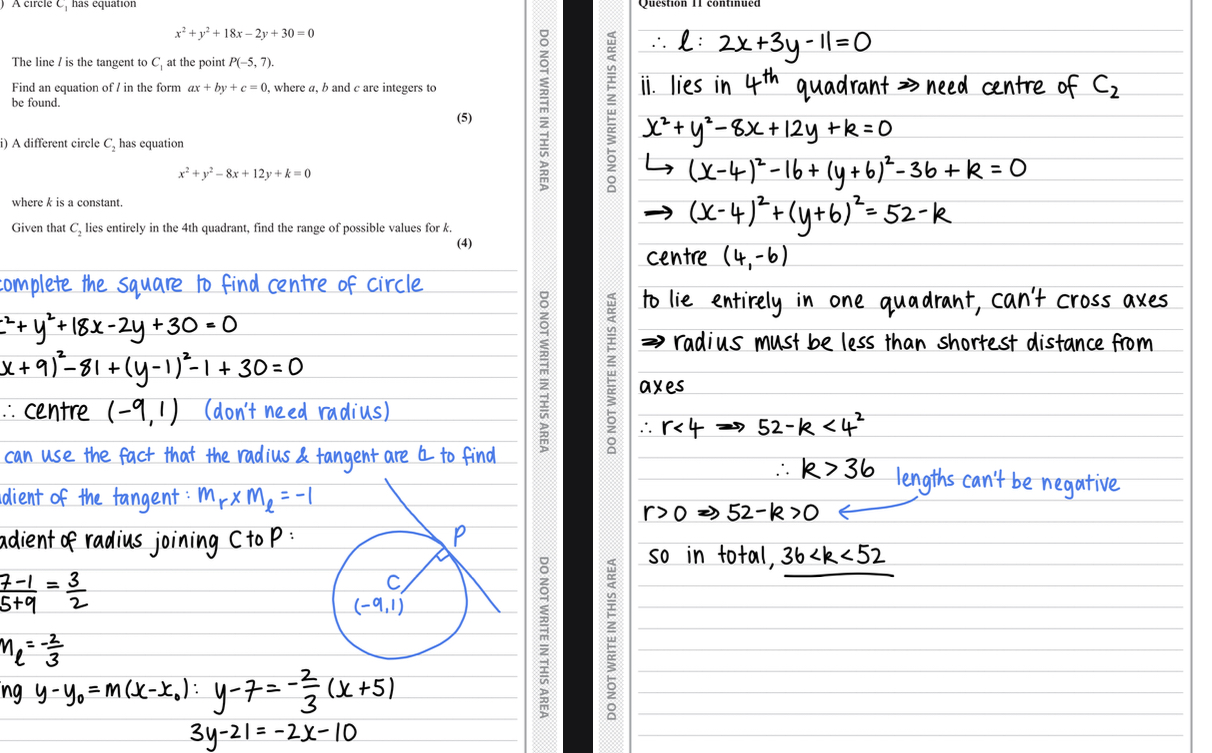 ) A circle C₁ has equation
x² + y² + 18x – 2y + 30 = 0
The line l is the tangent to C₁ at the point P(–5, 7).
Find an equation of l in the form ax + by + c = 0, where a, b and c are integers to
be found.
(5)
i) A different circle C₂ has equation
x² + y² – 8x + 12y + k = 0
where k is a constant.
Given that C₂ lies entirely in the 4th quadrant, find the range of possible values for k.
(4)
complete the square to find centre of circle
²+ y²+18x-2y+30 = 0
x+9)²-81+(y-1)²-1+30=0
∴ centre (-9,1) (don't need radius)
can use the fact that the radius & tangent are to find
dient of the tangent: mᵣ x mₗ = -1
adient of radius joining C to P:
7-1/5+9 = 3/2
P
C
(-9,1)
mₗ = -2/3
ng y-y₀=m(x-x₀): y-7=-2/3(x+5)
3y-21=-2x-10
DO NOT WRITE IN THIS AREA
DO NOT WRITE IN THIS AREA
DO NOT WRITE IN THIS AREA
DO NOT WRITE IN THIS AREA
DO NOT WRITE IN THIS AREA
DO NOT WRITE IN THIS AREA
Question 11 continued
∴ l: 2x+3y-11=0
ii. lies in 4th quadrant ⇒ need centre of C₂
x²+y²-8x+12y+k=0
↳ (x-4)²-16+(y+6)²-36+k=0
→ (x-4)²+(y+6)²=52-k
centre (4,-6)
to lie entirely in one quadrant, can't cross axes
⇒ radius must be less than shortest distance from
axes
∴ r<4 ⇒ 52-k<4²
∴ k>36
lengths can't be negative
r>0 ⇒ 52-k>0
so in total, 36<k<52